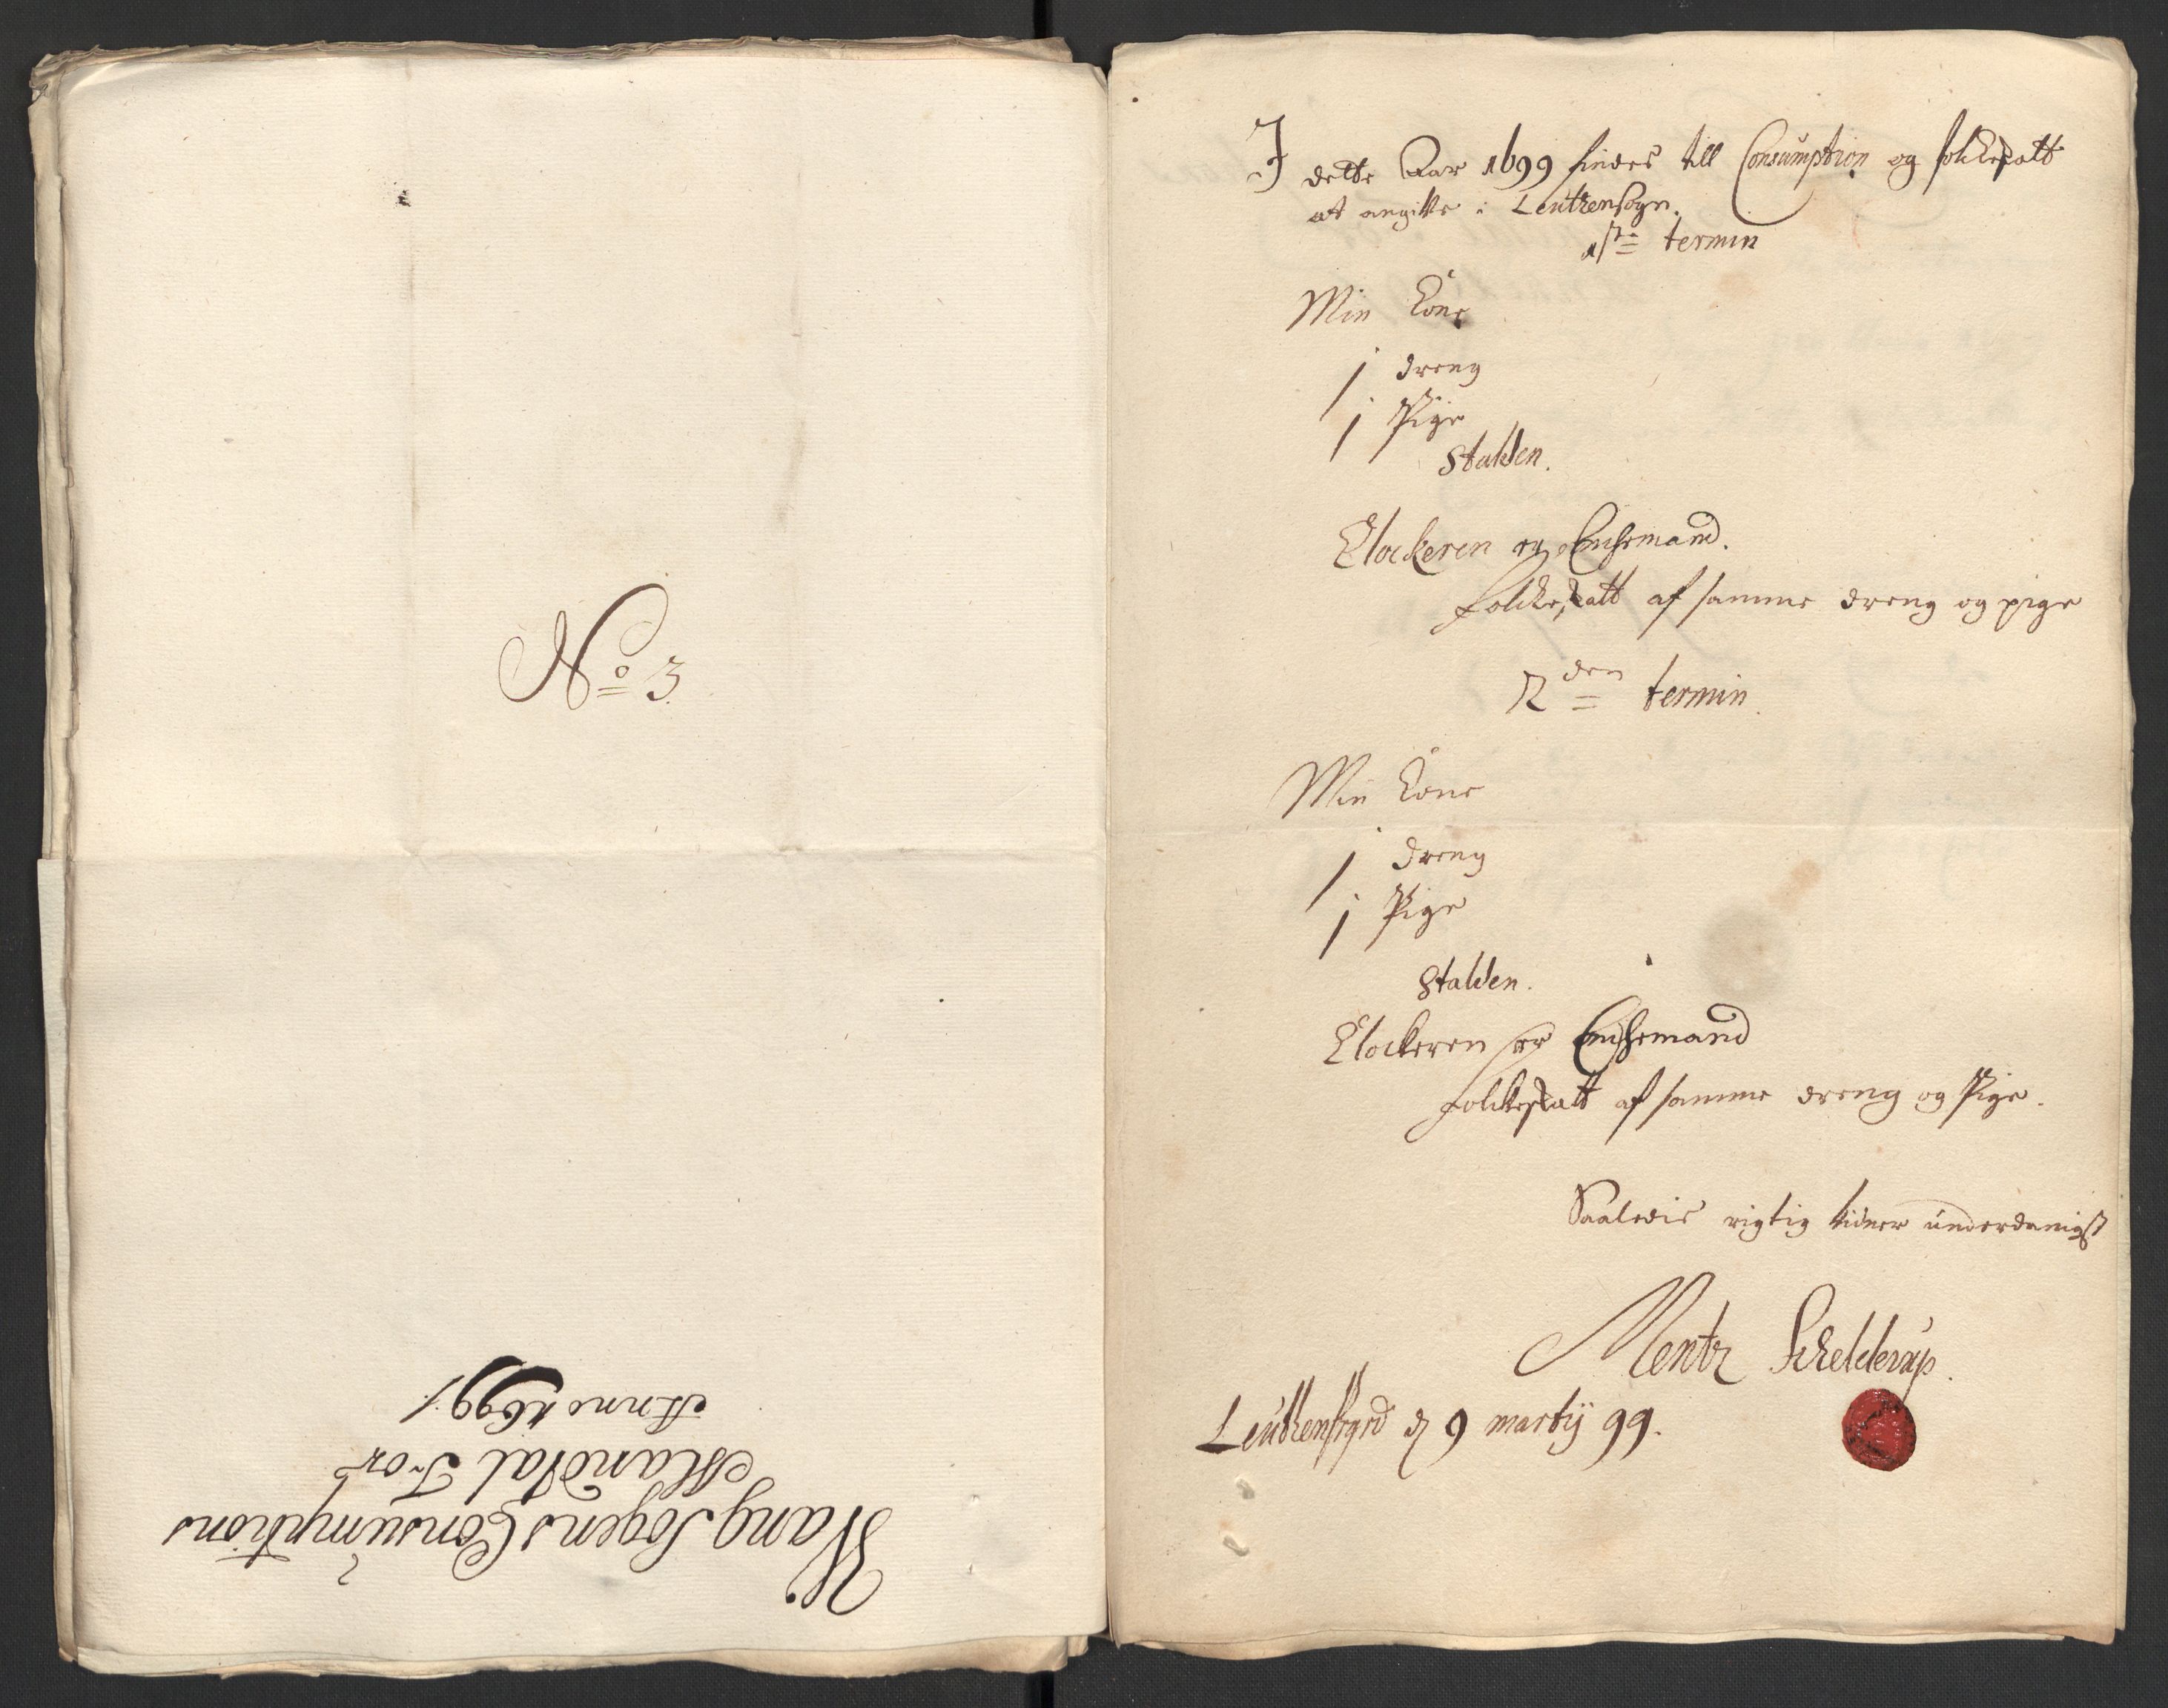 No 3
Wang Sogens Consumptions
Mandtal For
Anno 1699
I dette Aar 1699 findes till Consumption og folcheskatt
at angifve i Leuthensogn.
1ste termin
Min Kone
1 dreng
1 Pige
Stalden.
Klockeren er Enchemand.
folckeskatt af samme dreng og pige
2den termin.
Min Kone
1 dreng
1 Pige
Stalden.
Klockeren er Enchemand
folckeskatt af samme dreng og Pige.
Saaledis rigtig vidner underdanigst
Mentz Schelderup.
d 9 martij 99.